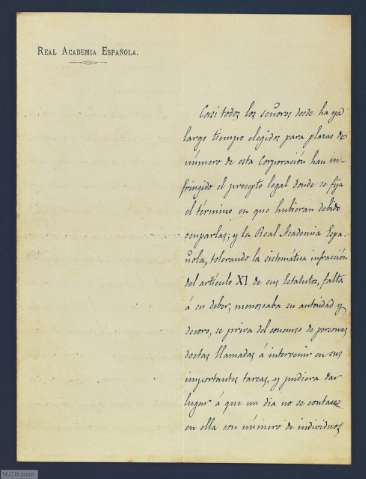 REAL ACADEMIA ESPAÑOLA.
Casi todos los señores desde ha ya
largo tiempo elegidos para plazas de
número de esta Corporación han in-
fringido el precepto legal donde se fija
el término en que hubieran debido
ocuparlas; y la Real Academia Espa-
ñola, tolerando la sistemática infracción
del artículo XI de sus Estatutos, falta
á su deber, menoscaba su autoridad y
decoro, se priva del concurso de personas
doctas llamadas á intervenir en sus
importantes tareas, y pudiera dar
lugar á que un dia no se contase
en ella con número de individuos